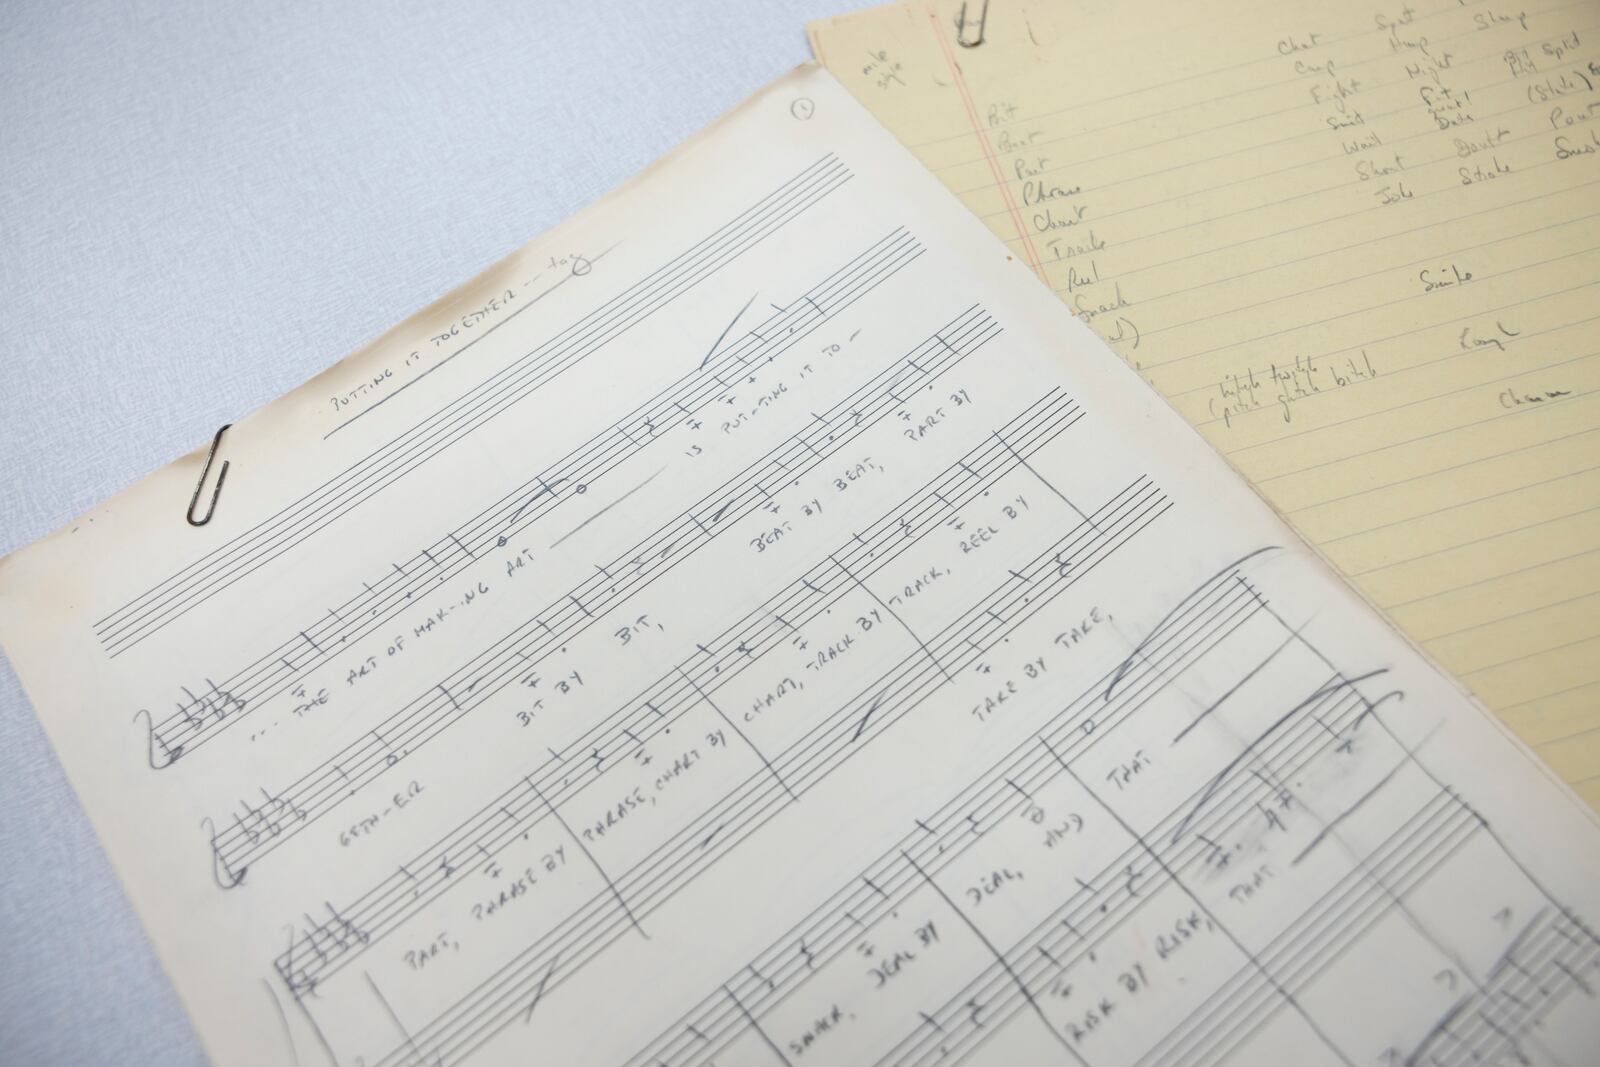 1
PUTTING IT TOGETHER --- tag
.... THE ART OF MAK-ING ART
IS PUT-TING IT TO-
GETH-ER
BIT BY BIT,
BEAT BY BEAT,
PART BY
PART, PHRASE BY
PHRASE, CHART BY
CHART, TRACK BY
TRACK, REEL BY
TAKE BY TAKE,
SNACK,
DEAL BY
DEAL, AND
THAT
RISK BY RISK,
THAT
mile
style
Bit
Beat
Part
Phrase
Chart
Track
Reel
Snack
Chat Spat Sleep
Fight Night Bit Split
Wait Date (State)
Shout Doubt Pout
Joke Stroke Smoke
Smile
hitch twitch
(pitch glitch bitch